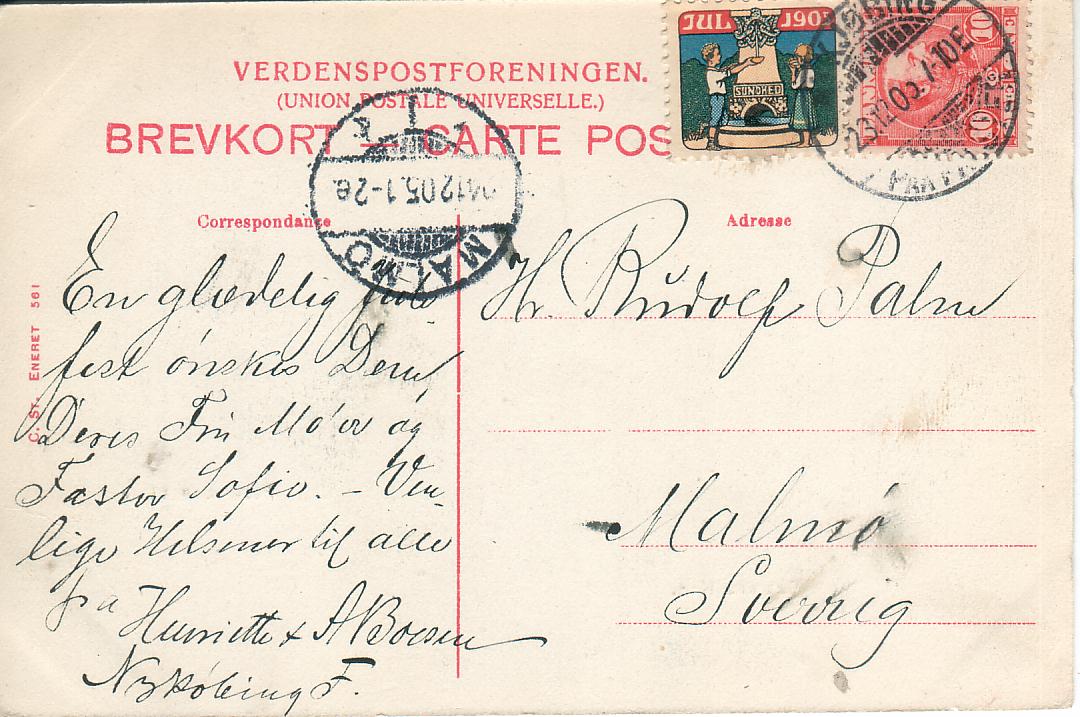 JUL 1905
SUNDHED
10 10
KJØBING
23.12.05. 7-10E
VERDENSPOSTFORENINGEN.
(UNION POSTALE UNIVERSELLE.)
BREVKORT — CARTE POS
24 12 05. 1-2e.
MALMÖ
Correspondance
Adresse
C. ST. ENERET 561
En glædelig Jule
fest ønskes Dem,
Deres Fin Mo'er og
Faster Sofie. - Ven-
lige Hilsener til alle
fra Henriette & A Boesen
Nykøbing F.
Hr. Rudolf Palm
Malmø
Sverrig